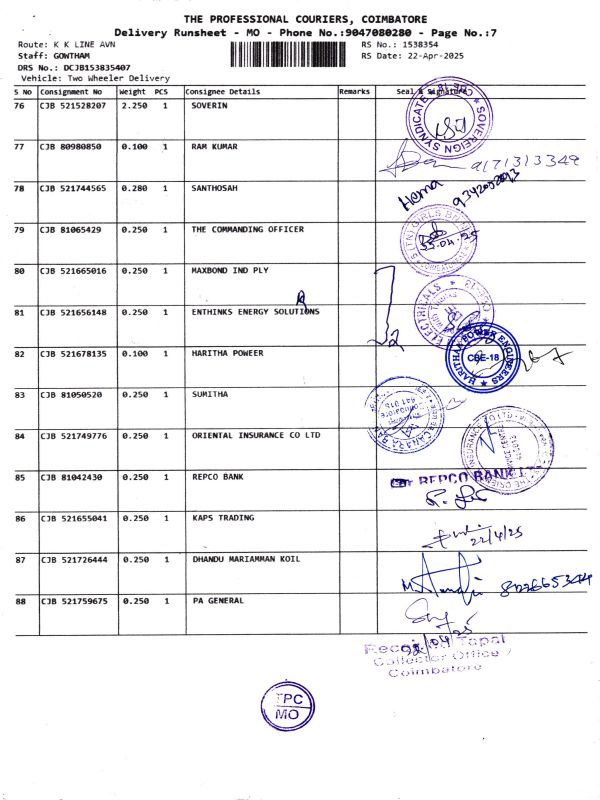 THE PROFESSIONAL COURIERS, COIMBATORE
Delivery Runsheet - MO - Phone No.:9047080280 - Page No.:7
Route: K K LINE AVN
RS No.: 1538354
Staff: GOWTHAM
RS Date: 22-Apr-2025
DRS No.: DCJB153835407
Vehicle: Two Wheeler Delivery
S No Consignment No Weight PCS Consignee Details Remarks Seal & Signature
76 CJB 521528207 2.250 1 SOVERIN
SOVEREIGN SYNDICATE
77 CJB 80980850 0.100 1 RAM KUMAR
9171313349
78 CJB 521744565 0.280 1 SANTHOSAH
Hema
79 CJB 81065429 0.250 1 THE COMMANDING OFFICER
80 CJB 521665016 0.250 1 MAXBOND IND PLY
81 CJB 521656148 0.250 1 ENTHINKS ENERGY SOLUTIONS
ELECTRICALS
82 CJB 521678135 0.100 1 HARITHA POWEER
HARITHAA POWER ENGINEERS
CBE-18
83 CJB 81050520 0.250 1 SUMITHA
84 CJB 521749776 0.250 1 ORIENTAL INSURANCE CO LTD
85 CJB 81042430 0.250 1 REPCO BANK
REPCO BANK
86 CJB 521655041 0.250 1 KAPS TRADING
22/4/25
87 CJB 521726444 0.250 1 DHANDU MARIAMMAN KOIL
88 CJB 521759675 0.250 1 PA GENERAL
Tapal
Collector Office
Coimbatore
TPC
MO